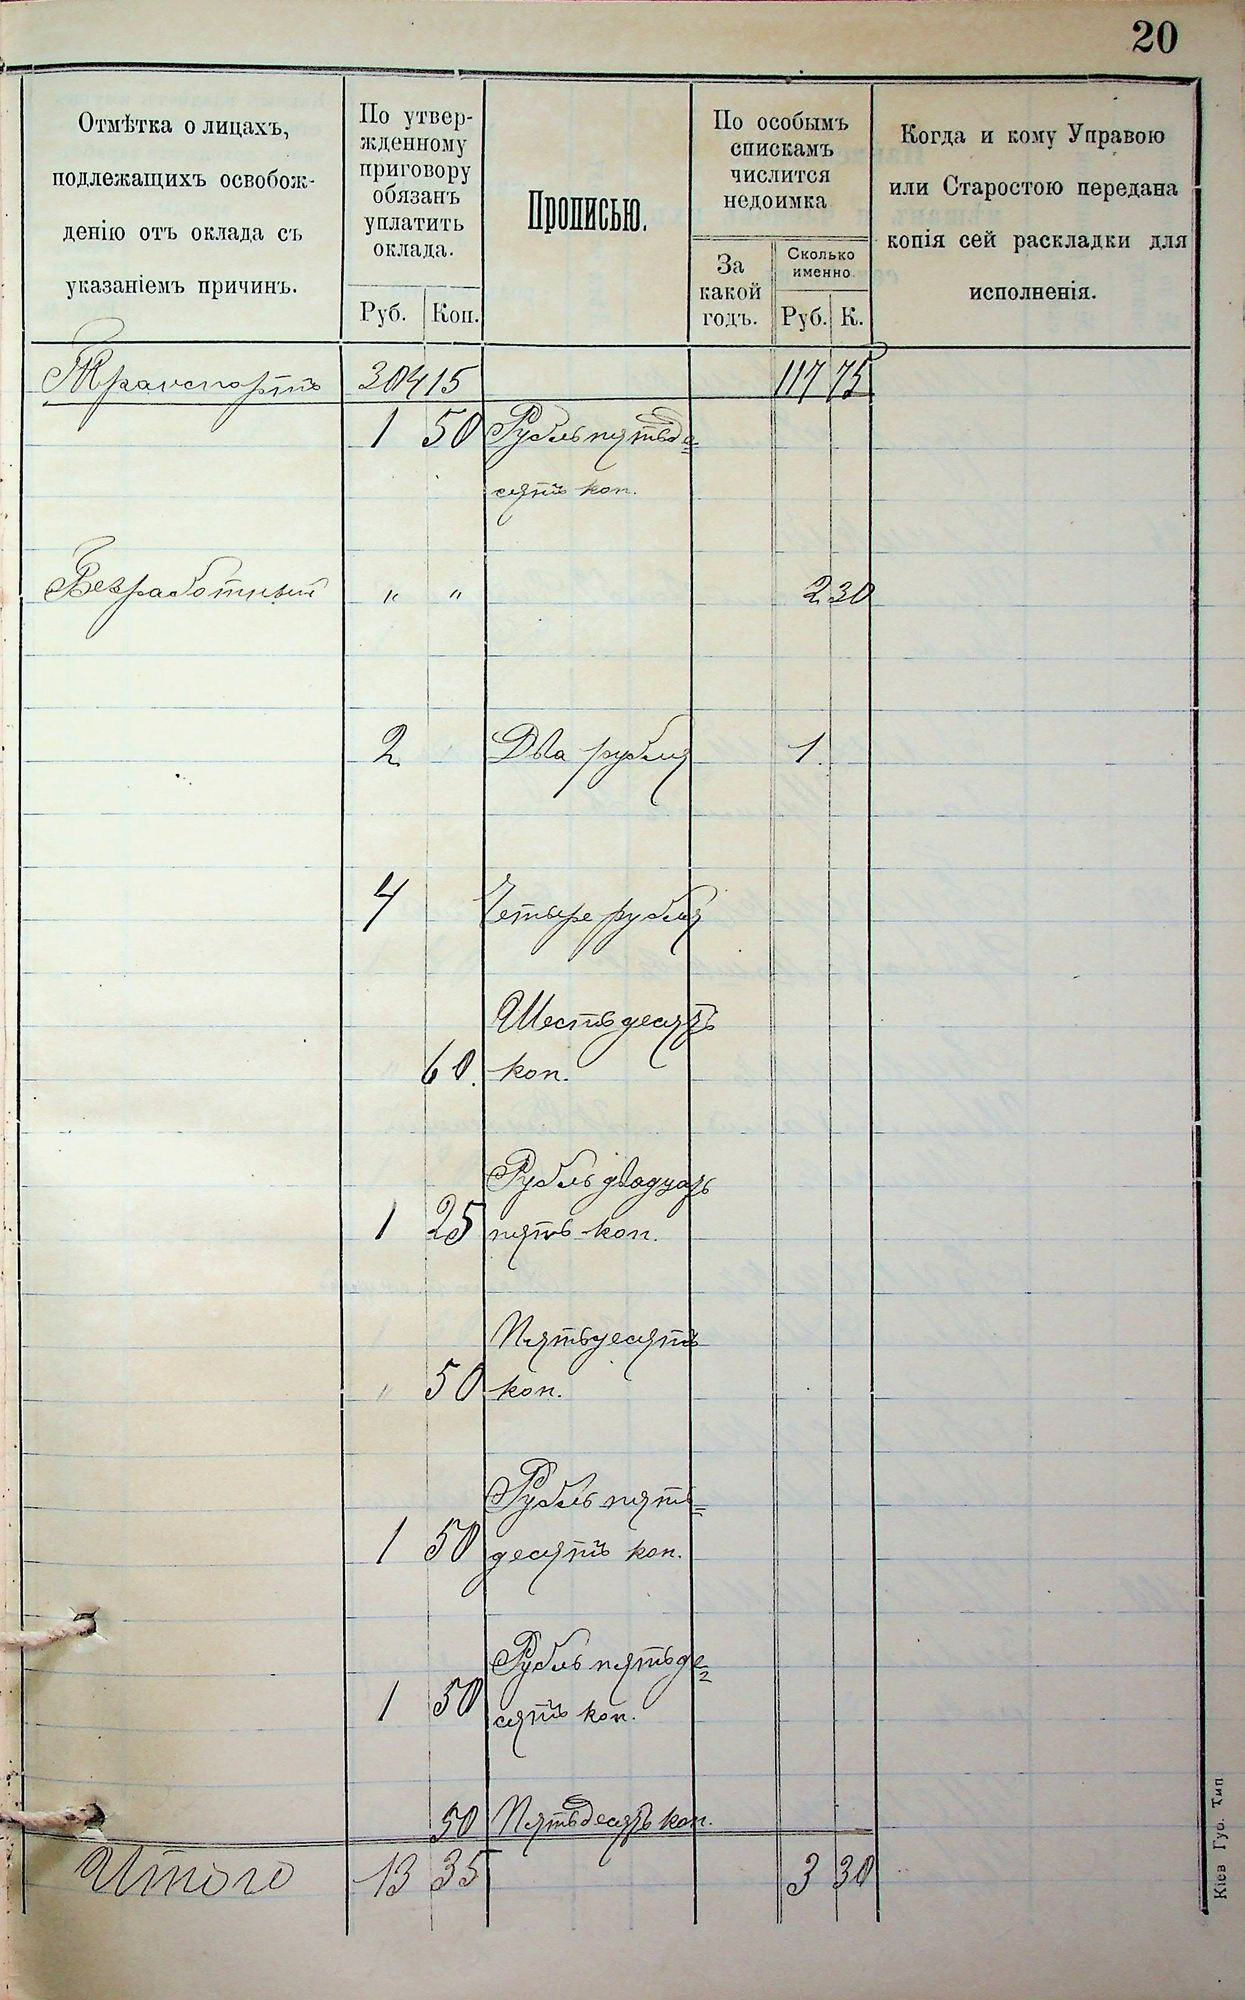 20
Отмѣтка о лицахъ,
подлежащихъ освобож-
денію отъ оклада съ
указаніемъ причинъ.
По утвер-
жденному
приговору
обязанъ
уплатить
оклада.
Руб. Коп.
Прописью.
По особымъ
спискамъ
числится
недоимка
За
какой
годъ.
Сколько
именно.
Руб. К.
Когда и кому Управою
или Старостою передана
копія сей раскладки для
исполненія.
Транспортъ 304 15 117 75
1 50 Рубль пятьде=
сятъ коп.
Безработный " " 2 30
2 " Два рубля 1.
4 Четыре рубля
Шестьдесятъ
" 60. коп.
Рубль двадцать
1 25 пять коп.
Пятьдесятъ
" 50 коп.
Рубль пять=
1 50 десятъ коп.
Рубль пятьде=
1 50 сятъ коп.
50 Пятьдесятъ коп.
Итого 13 35 3 30
Кіев Губ. Тип